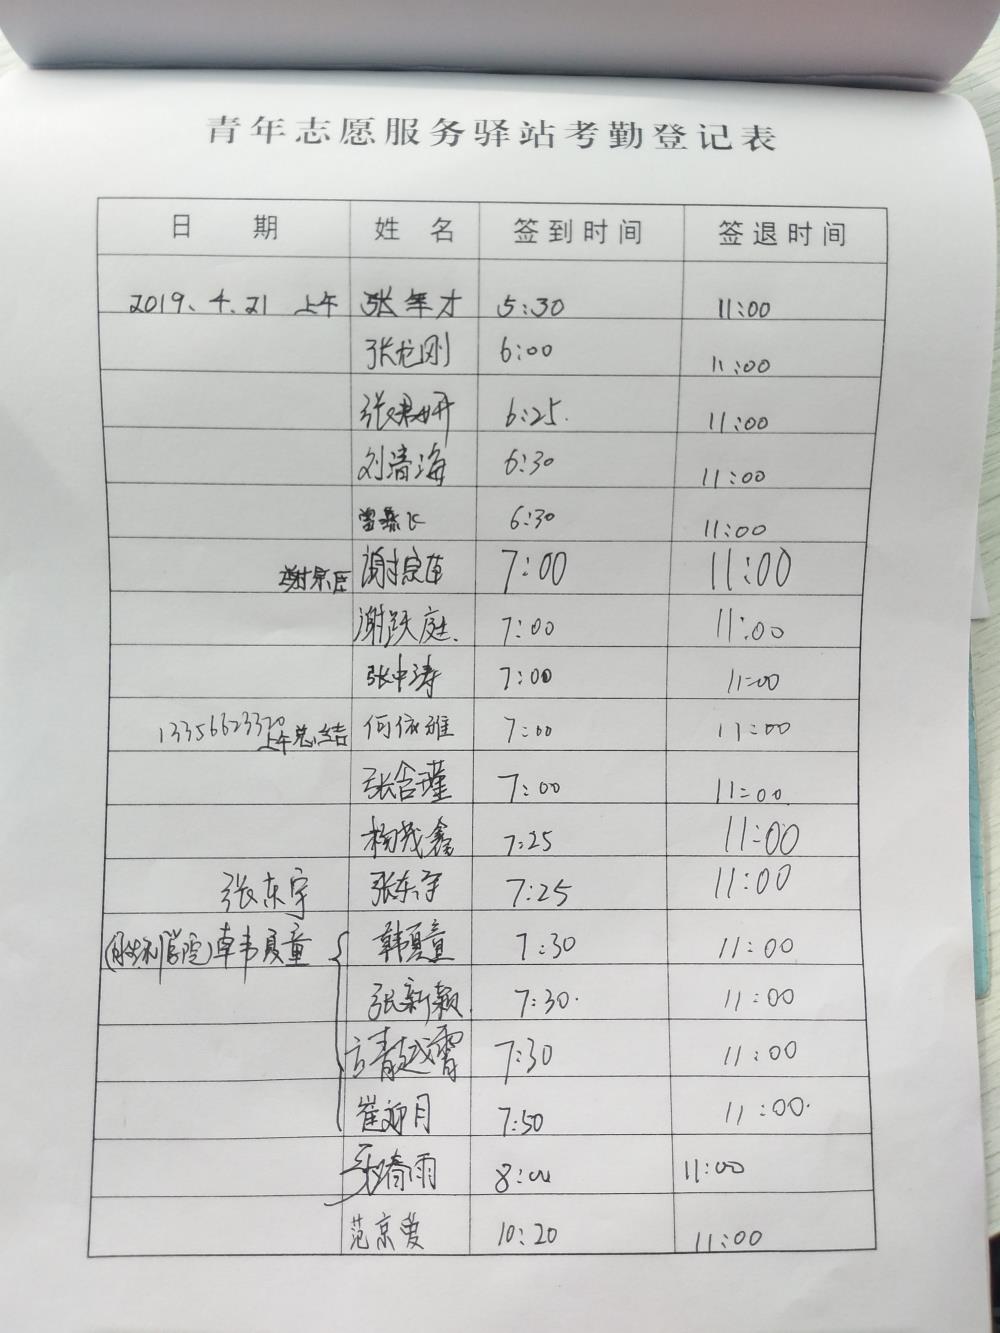 青年志愿服务驿站考勤登记表
日 期 姓 名 签到时间 签退时间
2019.4.21 上午 张军才 5:30 11:00
张龙刚 6:00 11:00
张 6:25. 11:00
刘清海 6:30 11:00
6:30 11:00
谢宗臣 谢宗臣 7:00 11:00
谢跃庭. 7:00 11:00
张中涛 7:00 11:00
13356623320
上午总结 何依雅 7:00 11:00
张含瑾 7:00 11:00
杨茂鑫 7:25 11:00
张东宇 张东宇 7:25 11:00
(胜利学院)韩夏童 韩夏童 7:30 11:00
张新颖 7:30. 11:00
7:30 11:00
崔 月 7:50 11:00.
春雨 8:00 11:00
范京 10:20 11:00